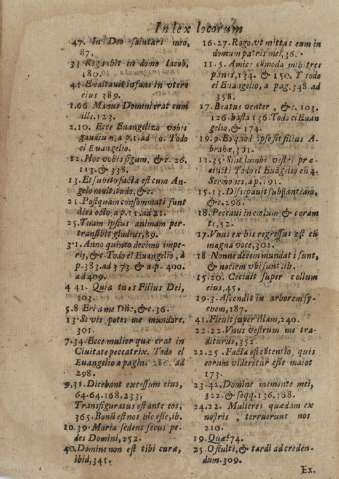 Index locorum
47. In Deo salutari meo,
87.
33. Regnabit in domo Iacob,
180.
41. Exaltauit infans in vtero
eius 389.
1.66 Manus Domini erat cum
illo. 123.
2.10. Ecce Euangelizo vobis
gaudiũ
el Euangelio.
12. Hoc vobis signum, &c. 26.
113. & 338.
13. Et subito facta est cum An-
gelo multitudo, &c.
21. Postquam consummati sunt
dies octo, a p. 1. ad 21.
35. Tuam ipsius animam per-
transibit gladius, 89.
3.1. Anno quinto decimo impe-
rij, &c. Todo el Euangelio, a
p. 383. ad 373 & a p. 400.
ad 409.
4 41. Quia tu es Filius Dei,
103.
5.8. Exi a me Dñe, &c. 36.
13. Si vis potes me mundare,
301.
7.34. Ecce mulier quæ erat in
Ciuitate peccatrix. Todo el
Euangelio a pagin. 286. ad
298.
9.31. Dicebant excessum eius,
64.64.168.233.
Transfiguratus est ante eos,
365. Bonũ est nos hic esse, ib.
10.39. Maria sedens secus pe-
des Domini, 252.
40. Domine non est tibi curæ,
ibid, 341.
16.27. Rogo, vt mittas eum in
domum patris mei, 36.
11.5. Amice comoda mihi tres
panes, 134. & 150. Y todo
el Euangelio, a pag. 348. ad
358.
17. Beatus venter, &c. 103.
126. basta 136. Todo el Euan
gelio, & 174.
19.9. Eo quod ipse sit filius A-
brahæ, 371.
11.35. Sint lumbi vestri præ-
cincti. Todo el Euãgelio en 4.
Sermones, a p. 191.
15.13. Dissipauit substantiam,
&c. 296.
18. Peccaui in cælum & coram
te, 52.
17. Vnus ex his regressus est cũ
magna voce, 302.
18 Nonne decem mundati sunt,
& nouem vbi sunt. ib.
15.20. Cecidit super collum
eius, 45.
19.3. Ascendit in arborem sy-
comorum, 187.
41. Fleuit super illam, 240.
22.22. Vnus vestrum me tra-
diturus, 352
22.25. Facta est contentio, quis
eorum videretur esse maior
173.
23.42. Domine memento mei,
322. & seqq. 136. 108.
24.22. Mulieres quædam ex
nostris, terruerunt nos
201.
19. Quæ? 74.
25. O stulti, & tardi ad creden-
dum. 309.
Ex.